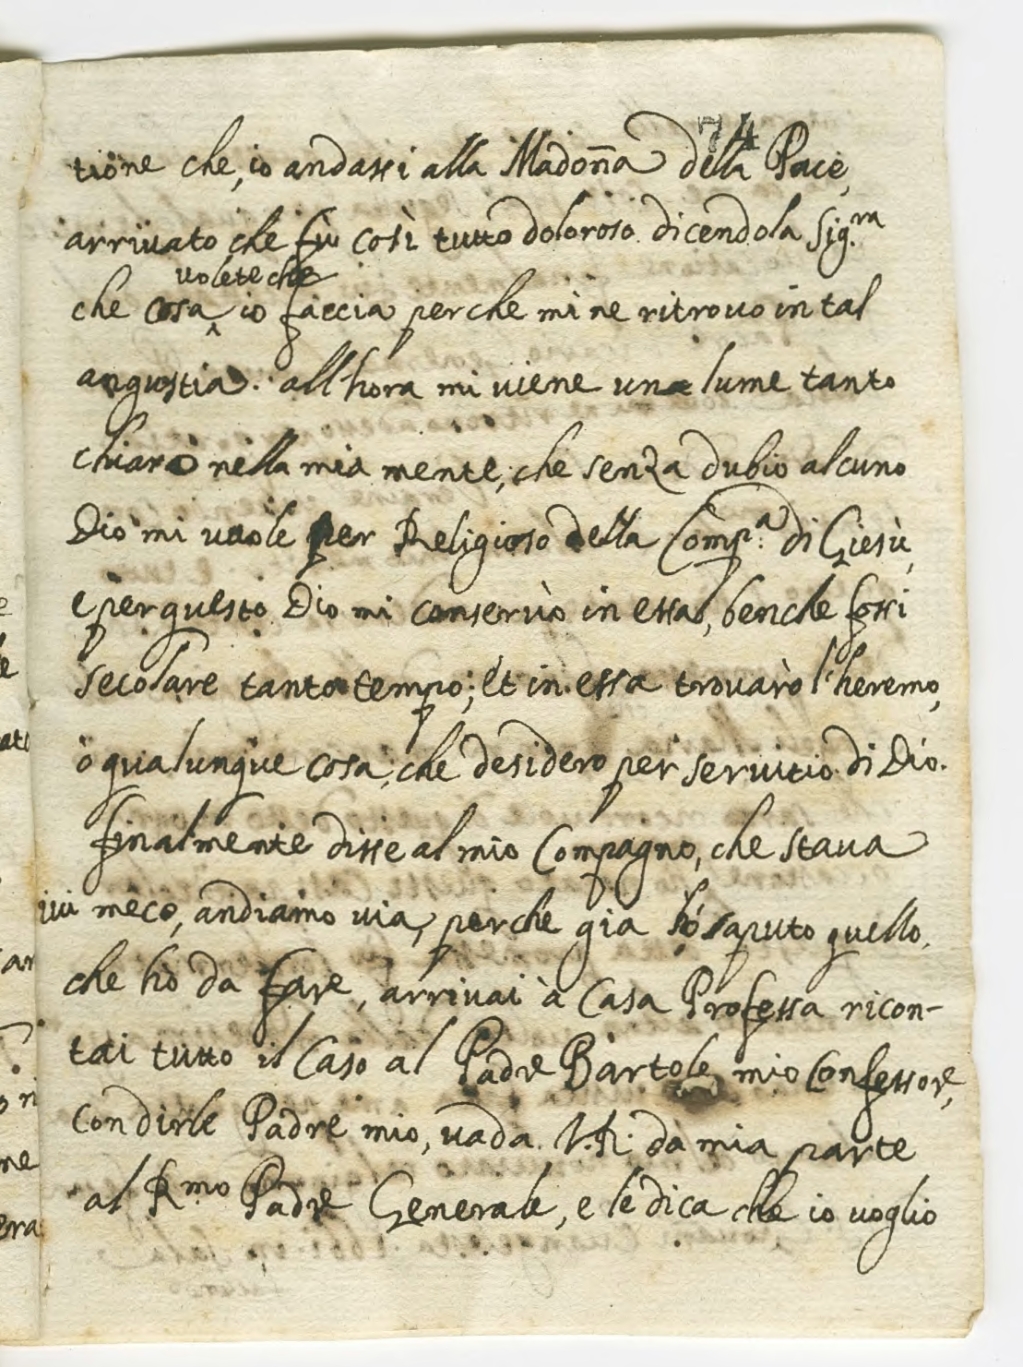 74
tione che, io andassi alla Madoña della Pace,
arriuato che fù così tutto doloroso dicendola Sig.ra
che cosa ^ volete che io faccia perche mi ne ritrouo in tal
angustia. all'hora mi viene una lume tanto
chiaro nella mia mente, che senza dubio alcuno
Dio mi uuole per Religioso della Comp.a di Giesù,
e per questo Dio mi conseruò in essa, benche fossi
secolare tanto tempo; et in essa trouarò l'heremo,
ò qualunque cosa, che desidero per seruitio di Dio.
finalmente disse al mio Compagno, che staua
iui meco, andiamo via, perche gia hò saputo quello,
che hò da fare, arriuai à Casa Professa ricon-
tai tutto il Caso al Padre Bartole mio Confessore,
con dirle Padre mio, vada V.R. da mia parte
al Rmo Padre Generale, e le dica che io voglio